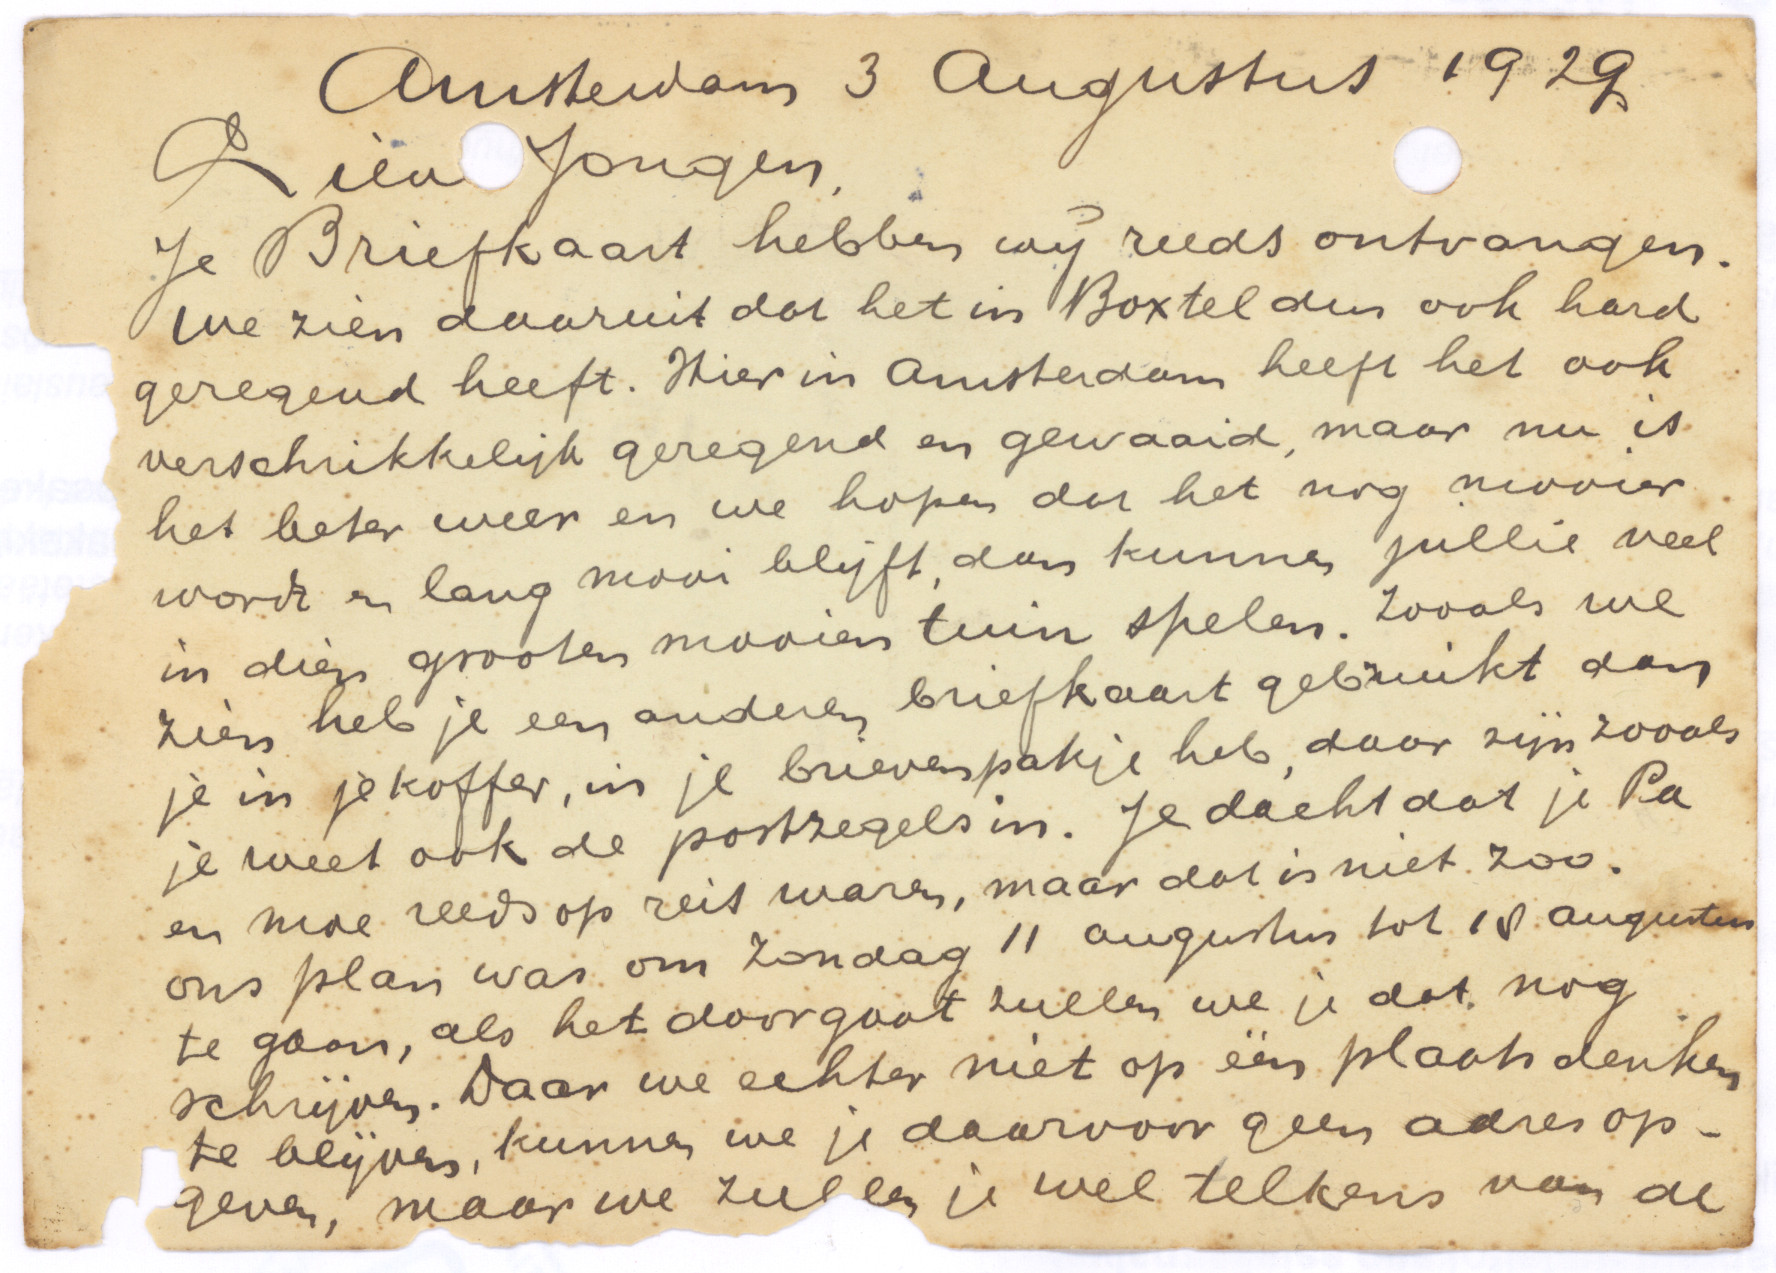 Amsterdam 3 Augustus 1929
Lieve Jongen,
Je Briefkaart hebben wij reeds ontvangen.
We zien daaruit dat het in Boxtel dus ook hard
geregend heeft. Hier in Amsterdam heeft het ook
verschrikkelijk geregend en gewaaid, maar nu is
het beter weer en we hopen dat het nog mooier
wordt en lang mooi blijft, dan kunnen jullie veel
in dien grooten mooien tuin spelen. Zooals we
zien heb je een anderen briefkaart gebruikt dan
je in je koffer, in je brievenpakje heb, daar zijn zooals
je weet ook de postzegels in. Je dacht dat je Pa
en moe reeds op reis waren, maar dat is niet zoo.
ons plan was om Zondag 11 augustus tot 18 augustus
te gaan, als het doorgaat zullen we je dat nog
schrijven. Daar we echter niet op één plaats denken
te blijven, kunnen we je daarvoor geen adres op-
geven, maar we zullen je wel telkens van de